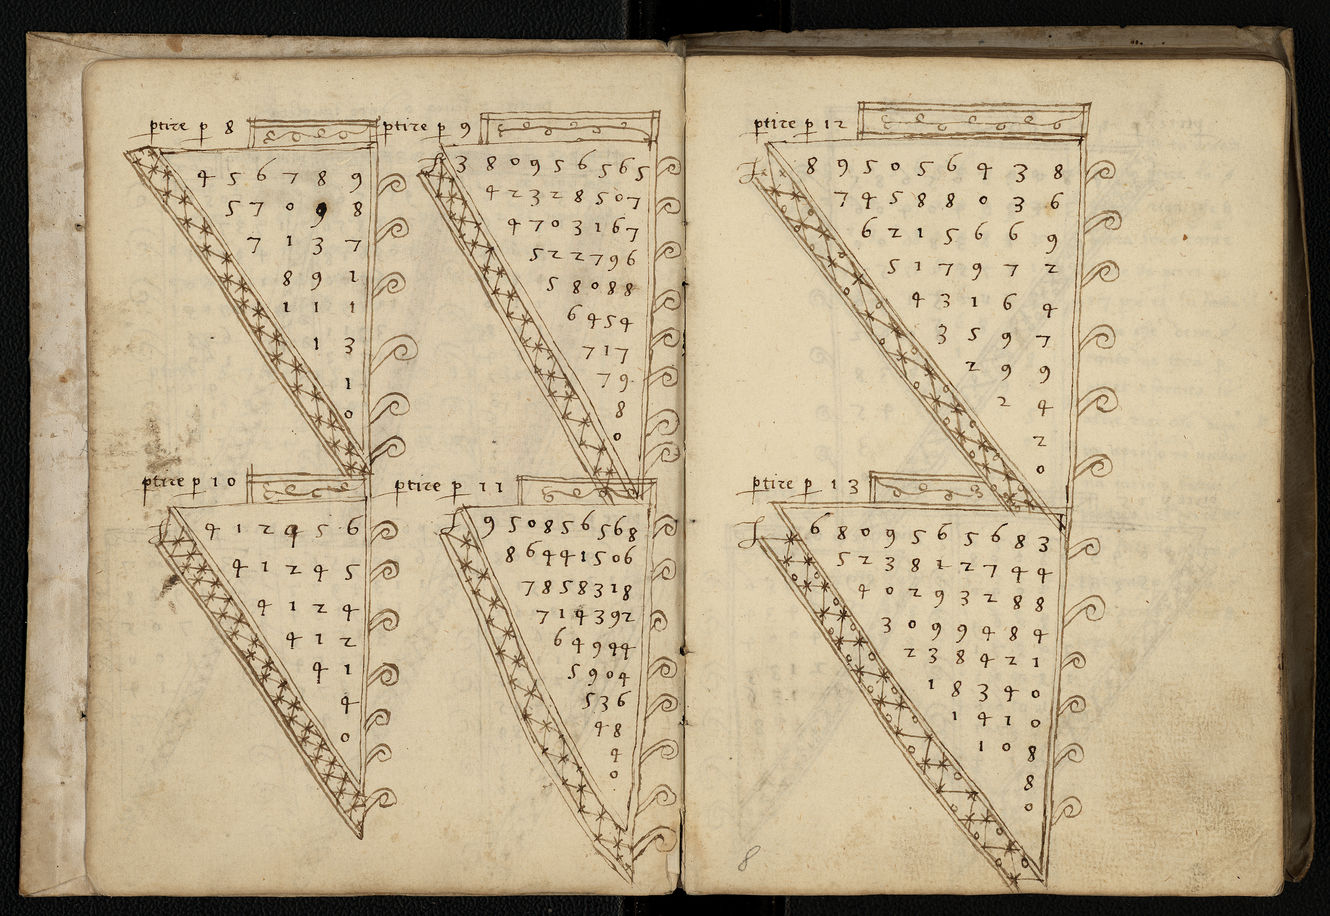 ptire p 8
4 5 6 7 8 9
5 7 0 9 8
7 1 3 7
8 9 1
1 1 1
1 3
1
0
ptire p 9
3 8 0 9 5 6 5 6 5
4 2 3 2 8 5 0 7
4 7 0 3 1 6 7
5 2 2 7 9 6
5 8 0 8 8
6 4 5 4
7 1 7
7 9
8
0
ptire p 10
4 1 2 4 5 6
4 1 2 4 5
4 1 2 4
4 1 2
4 1
4
0
ptire p 11
9 5 0 8 5 6 5 6 8
8 6 4 4 1 5 0 6
7 8 5 8 3 1 8
7 1 4 3 9 2
6 4 9 4 4
5 9 0 4
5 3 6
4 8
4
0
ptire p 12
8 9 5 0 5 6 4 3 8
7 4 5 8 8 0 3 6
6 2 1 5 6 6 9
5 1 7 9 7 2
4 3 1 6 4
3 5 9 7
2 9 9
2 4
2
0
ptire p 13
6 8 0 9 5 6 5 6 8 3
5 2 3 8 1 2 7 4 4
4 0 2 9 3 2 8 8
3 0 9 9 4 8 4
2 3 8 4 2 1
1 8 3 4 0
1 4 1 0
1 0 8
8
0
8